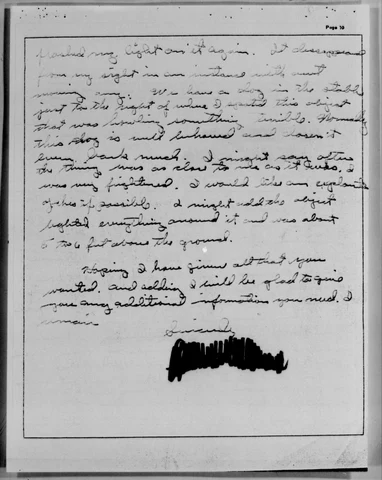 Page 10
flashed my light on it again. It disappeared
from my sight in an instance with out
moving any. We have a dog in the stable
just to the right of where I spotted this object
that was howling something terrible. Normally
this dog is well behaved and doesn't
even bark much. I might say after
the thing was as close to me as it was, I
was very frightened. I would like an explanation
of this if possible. I might add the object
lighted everything around it and was about
to 6 feet above the ground.
Hoping I have given all that you
wanted, and adding I will be glad to give
you any additional information you need. I
remain
Sincerely